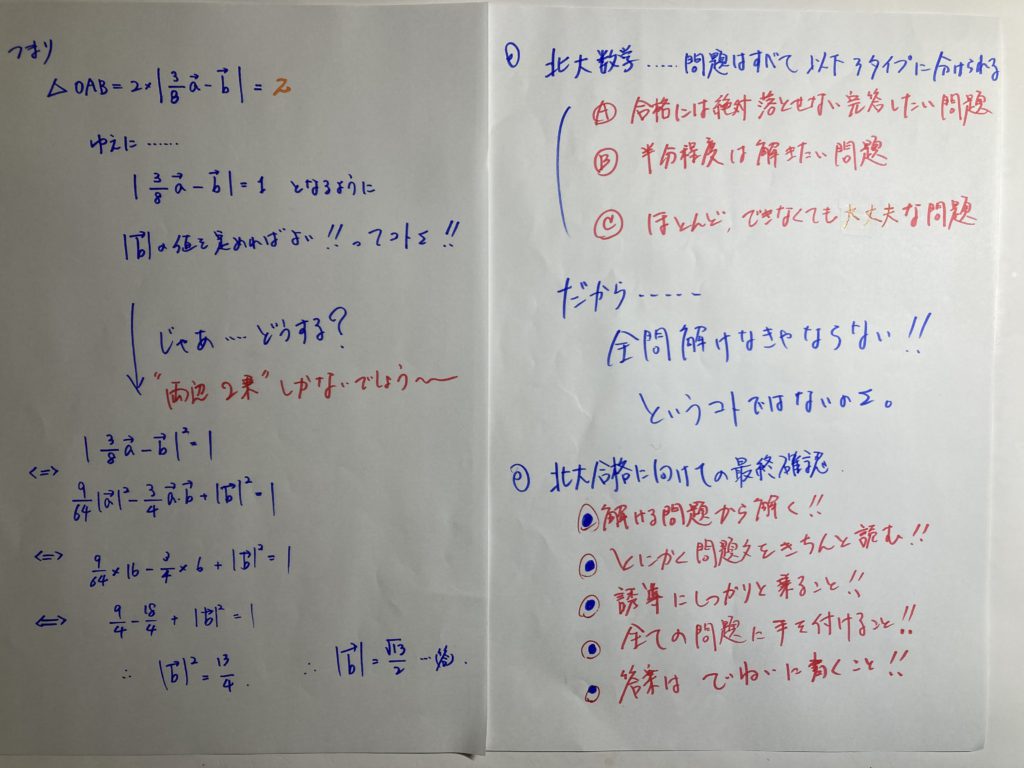 つまり
△OAB = 2×|3/8 a→ - b→| = 2
ゆえに……
|3/8 a→ - b→| = 1 となるように
|b→|の値を定めればよい!!ってコトさ!!
じゃあ…‥どうする?
"両辺2乗"しかないでしょう〜
|3/8 a→ - b→|² = 1
<=> 9/64|a→|² - 3/4 a→・b→ + |b→|² = 1
<=> 9/64×16 - 3/4×6 + |b→|² = 1
<=> 9/4 - 18/4 + |b→|² = 1
∴ |b→|² = 13/4. ∴ |b→| = √13/2 …
北大数学……問題はすべて以下3タイプに分けられる
Ⓐ 合格には絶対落とせない完答したい問題
Ⓑ 半分程度は解きたい問題
Ⓒ ほとんど、できなくても大丈夫な問題
だから……
全問解けなきゃならない!!
というコトではないのさ。
北大合格に向けての最終確認.
解ける問題から解く!!
とにかく問題文をきちんと読む!!
誘導にしっかりと乗ること!!
全ての問題に手を付けること!!
答案は ていねいに書くこと!!